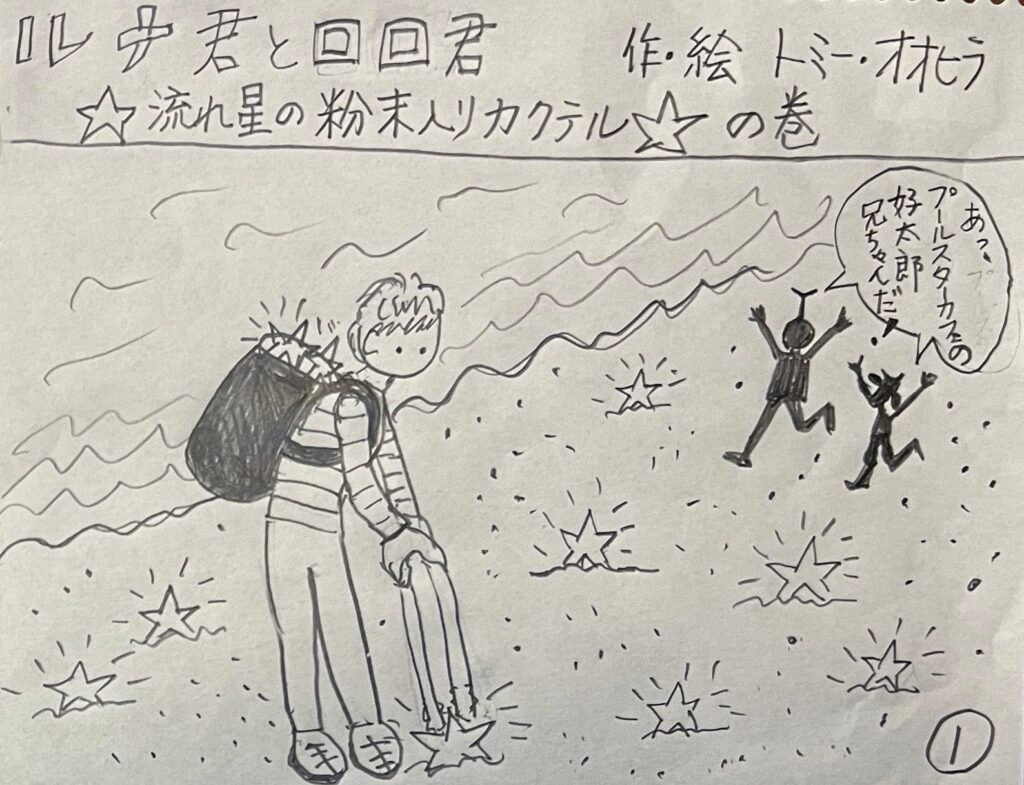 ルナ君と回回君
作・絵 トミー・オオヒラ
☆流れ星の粉末入りカクテル☆の巻
あっ、
プールスターカフェの
好太郎
兄ちゃんだ!
1